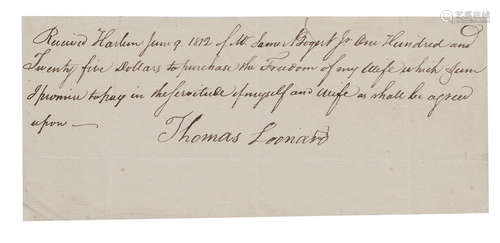 Received Harlem June 9. 1812 of Mr. James Bogert Jr One Hundred and
Twenty five Dollars to purchase the Freedom of my Wife which Sum
I promise to pay in the Servitude of myself and Wife as shall be agreed
upon —
Thomas Leonard